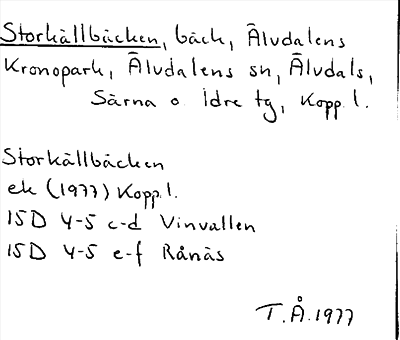 Storkällbäcken, bäck, Älvdalens
Kronopark, Älvdalens sn, Älvdals,
Särna o. Idre tg, Kopp.l.
Storkällbäcken
ek (1977) Kopp.l.
15D 4-5 c-d Vinvallen
15D 4-5 e-f Rånäs
T.Å.1977